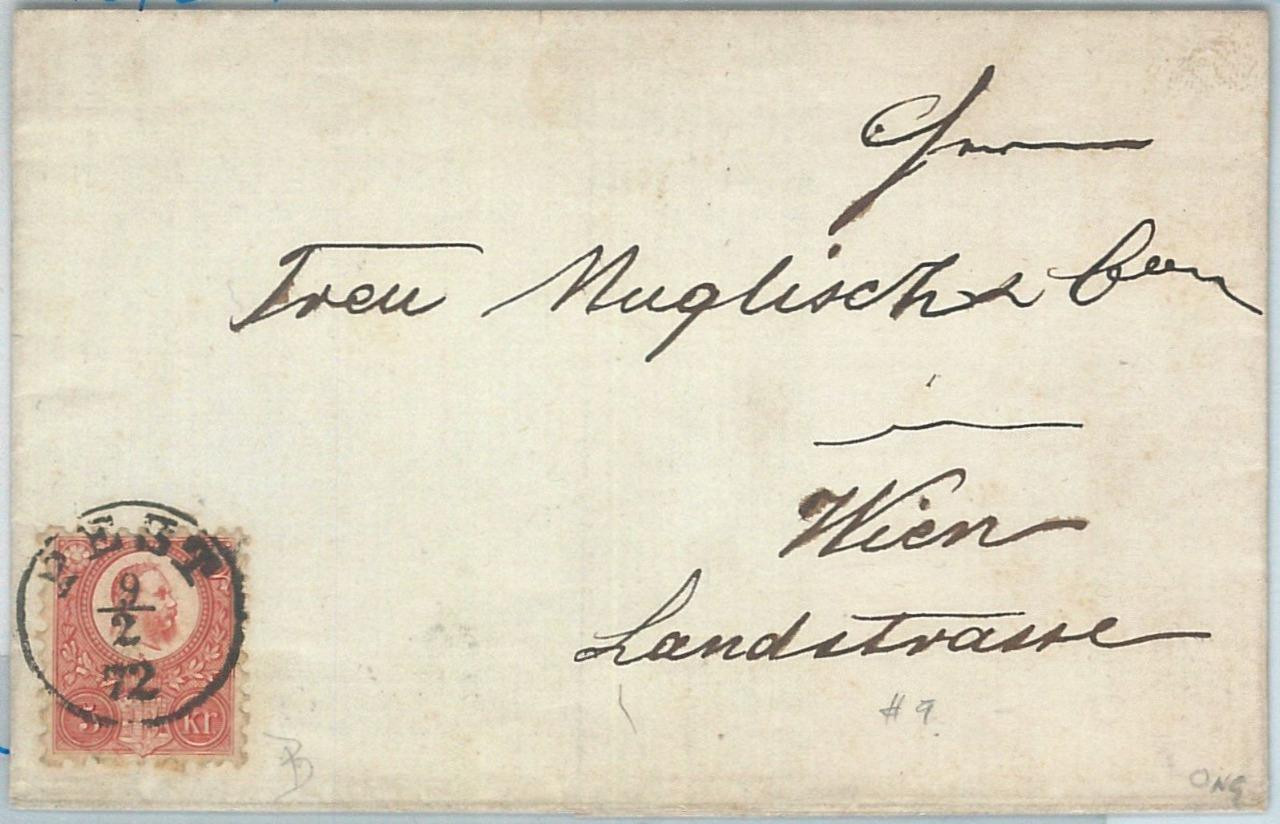 Herrn
Treu Nuglisch & Com
in
Wien
Landstrasse
PEST
9
2
72
5 Kr
# 9
ONG